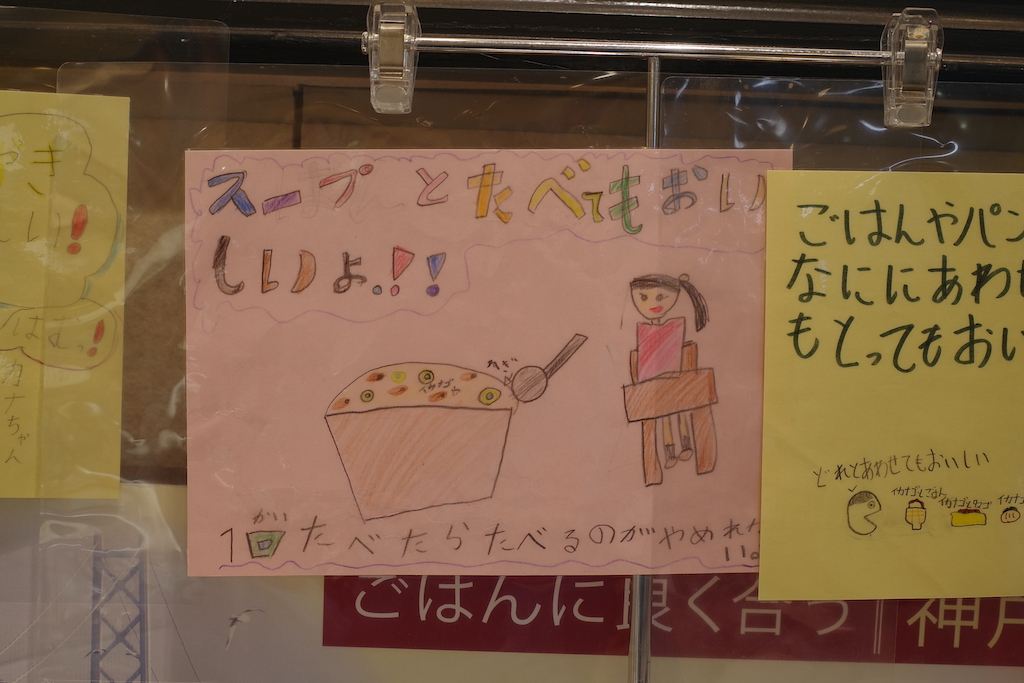 き
い!
はむっ!
カナちゃん
スープとたべてもおい
しいよ.!!
ねぎ
イカナゴや
かい
1回たべたらたべるのがやめれな
い。
ごはんやパン
なににあわせ
もとってもおい
どれとあわせてもおいしい
イカナゴとごはん
イカナゴとタマゴ
イカナゴ
ごはんに良く合う
神戸